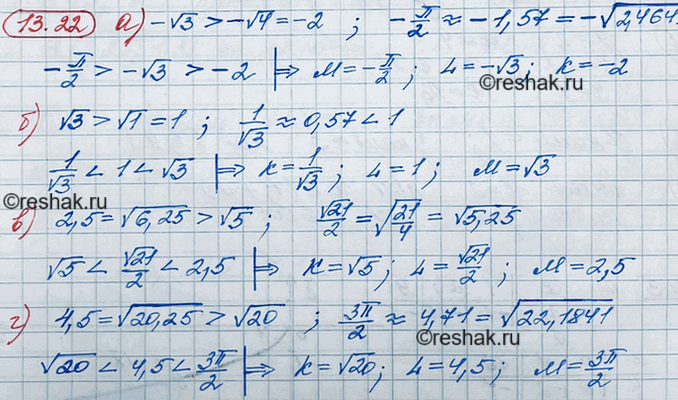 13.22 а) -√3 > -√4 = -2 ; -π/2 ≈ -1,57 = -√2,464
-π/2 > -√3 > -2 |⇒ M = -π/2 ; L = -√3 ; K = -2
©reshak.ru
б) √3 > √1 = 1 ; 1/√3 ≈ 0,57 < 1
1/√3 < 1 < √3 |⇒ K = 1/√3 ; L = 1 ; M = √3
©reshak.ru
в) 2,5 = √6,25 > √5 ; √21/2 = √(21/4) = √5,25
√5 < √21/2 < 2,5 |⇒ K = √5 ; L = √21/2 ; M = 2,5
г) 4,5 = √20,25 > √20 ; 3π/2 ≈ 4,71 = √22,1841
√20 < 4,5 < 3π/2 |⇒ K = √20 ; L = 4,5 ; M = 3π/2
©reshak.ru